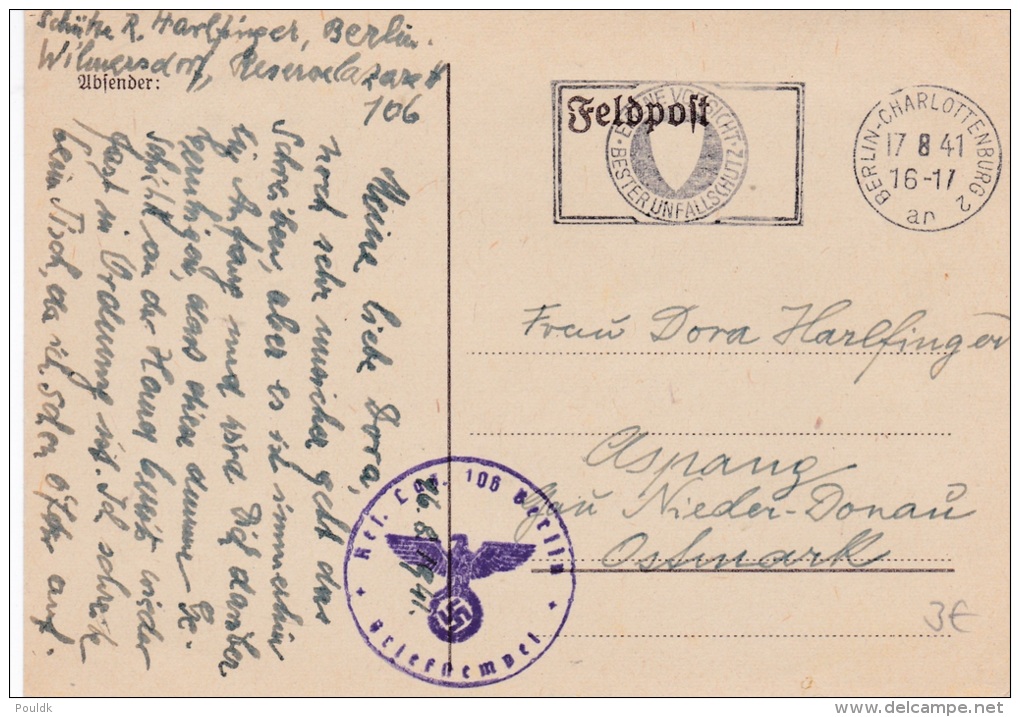 Schütze R. Harlfinger, Berlin.
Wilmersdorf, Reservelazarett
106
Absender:
Feldpost
EIGENE VORSICHT
BESTER UNFALLSCHUTZ
BERLIN-CHARLOTTENBURG 2
17 8 41
16-17
an
Meine liebe Dora,
noch sehr geht das
Schreiben, aber es ist immerhin
Anfang und wird Dich darüber
beruhigen, dass diese dumme Ge-
schicht an der Hand bereits wieder
fast in Ordnung ist. Ich schreibe
beim Tisch, da ich schon öfter auf
Frau Dora Harlfinger
Aspang
Gau Nieder-Donau
Ostmark
Res. Laz. 106 Berlin
Briefstempel
3€
Pouldk
www.delcampe.net